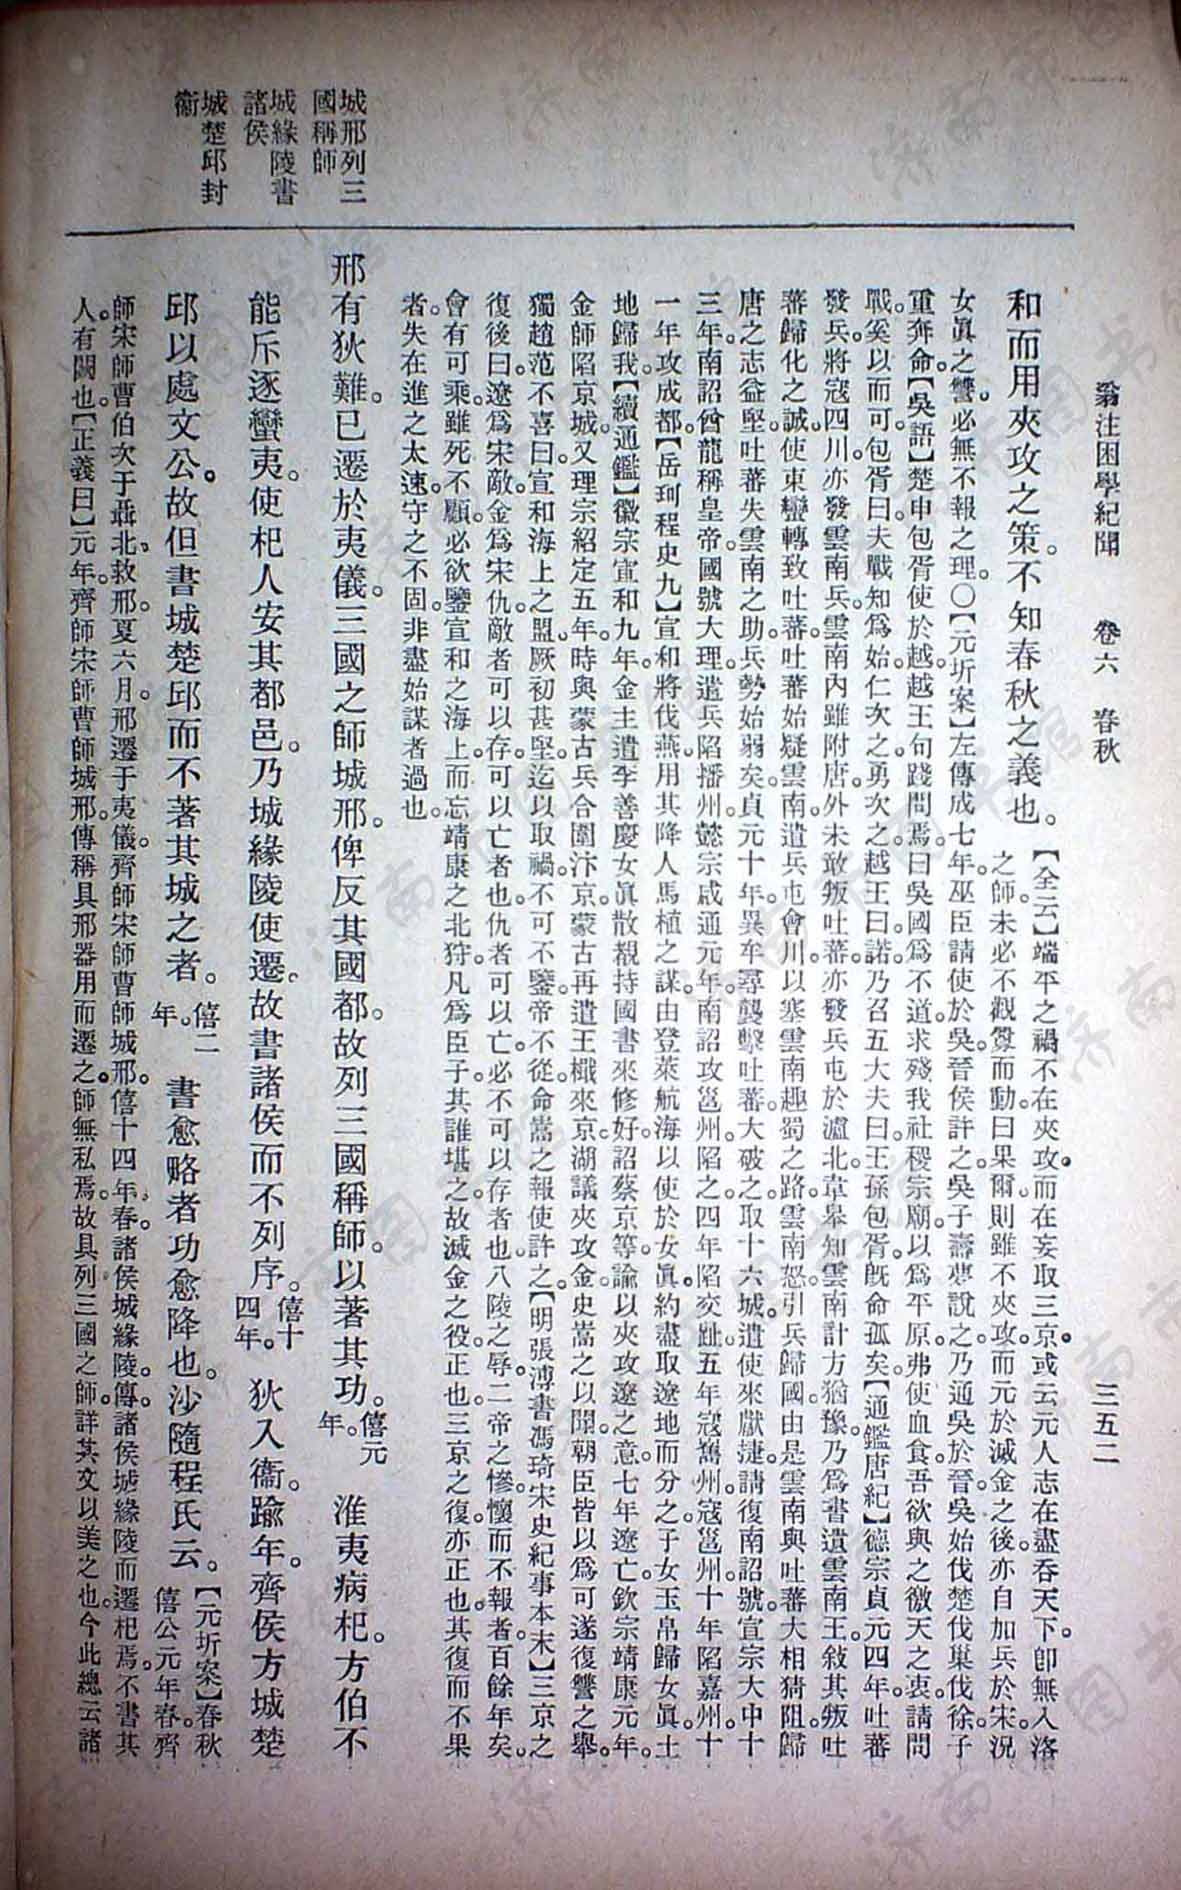 翁注困學紀聞　卷六　春秋　三五二
和而用夾攻之策。不知春秋之義也。【全云】端平之禍不在夾攻。而在妄取三京。或云元人志在盡吞天下。卽無入洛
之師。未必不觀釁而動。曰果爾。則雖不夾攻。而元於滅金之後。亦自加兵於宋。況
女眞之讐。必無不報之理。○【元圻案】左傳成七年。巫臣請使於吳。晉侯許之。吳子壽夢說之。乃通吳於晉。吳始伐楚伐巢伐徐。子
重奔命。【吳語】楚申包胥使於越。越王句踐問焉。曰吳國爲不道。求殘我社稷宗廟。以爲平原。弗使血食。吾欲與之徼天之衷。請問
戰奚以而可。包胥曰。夫戰知爲始。仁次之。勇次之。越王曰。諾。乃召五大夫曰。王孫包胥。旣命孤矣。【通鑑唐紀】德宗貞元四年。吐蕃
發兵將寇四川。亦發雲南兵。雲南內雖附唐。外未敢叛吐蕃。亦發兵屯於瀘北。韋皋知雲南計方猶豫。乃爲書遺雲南王。敍其叛吐
蕃歸化之誠。使東蠻轉致吐蕃。吐蕃始疑雲南。遣兵屯會川。以塞雲南趣蜀之路。雲南怒。引兵歸國。由是雲南與吐蕃大相猜阻。歸
唐之志益堅。吐蕃失雲南之助。兵勢始弱矣。貞元十年。異牟尋襲擊吐蕃。大破之。取十六城。遣使來獻捷。請復南詔號。宣宗大中十
三年。南詔酋龍稱皇帝。國號大理。遣兵陷播州。懿宗咸通元年。南詔攻邕州。陷之。四年陷交趾。五年寇巂州。寇邕州。十年陷嘉州。十
一年攻成都。【岳珂桯史九】宣和將伐燕。用其降人馬植之謀。由登萊航海。以使於女眞。約盡取遼地而分之。子女玉帛歸女眞。土
地歸我。【續通鑑】徽宗宣和九年。金主遣李善慶女眞散覩持國書來修好。詔蔡京等。諭以夾攻遼之意。七年遼亡。欽宗靖康元年。
金師陷京城。又理宗紹定五年。時與蒙古兵合圍汴京。蒙古再遣王檝來京湖議夾攻金。史嵩之以聞。朝臣皆以爲可遂復讐之舉。
獨趙范不喜曰。宣和海上之盟。厥初甚堅。迄以取禍。不可不鑒。帝不從。命嵩之報使許之。【明張溥書馮琦宋史紀事本末】三京之
復後曰。遼爲宋敵。金爲宋仇。敵者可以存可以亡者也。仇者可以亡。必不可以存者也。八陵之辱。二帝之慘。懷而不報者。百餘年矣。
會有可乘。雖死不顧。必欲鑒宣和之海上而忘靖康之北狩。凡爲臣子。其誰堪之。故滅金之役。正也。三京之復。亦正也。其復而不果
者。失在進之太速。守之不固。非盡始謀者過也。
邢有狄難。已遷於夷儀。三國之師城邢。俾反其國都。故列三國稱師。以著其功。僖元年。淮夷病杞。方伯不
能斥逐蠻夷。使杞人安其都邑。乃城緣陵使遷。故書諸侯而不列序。僖十四年。狄入衞。踰年。齊侯方城楚
邱以處文公。故但書城楚邱而不著其城之者。僖二年。書愈略者功愈降也。沙隨程氏云。【元圻案】春秋僖公元年春。齊
師宋師曹伯次于聶北。救邢。夏六月。邢遷于夷儀。齊師宋師曹師城邢。僖十四年。春。諸侯城緣陵。傳。諸侯城緣陵而遷杞焉。不書其
人。有闕也。【正義曰】元年。齊師宋師曹師城邢。傳稱具邢器用而遷之。師無私焉。故具列三國之師。詳其文以美之也。今此總云諸
城邢列三
國稱師
城緣陵書
諸侯
城楚邱封
衞